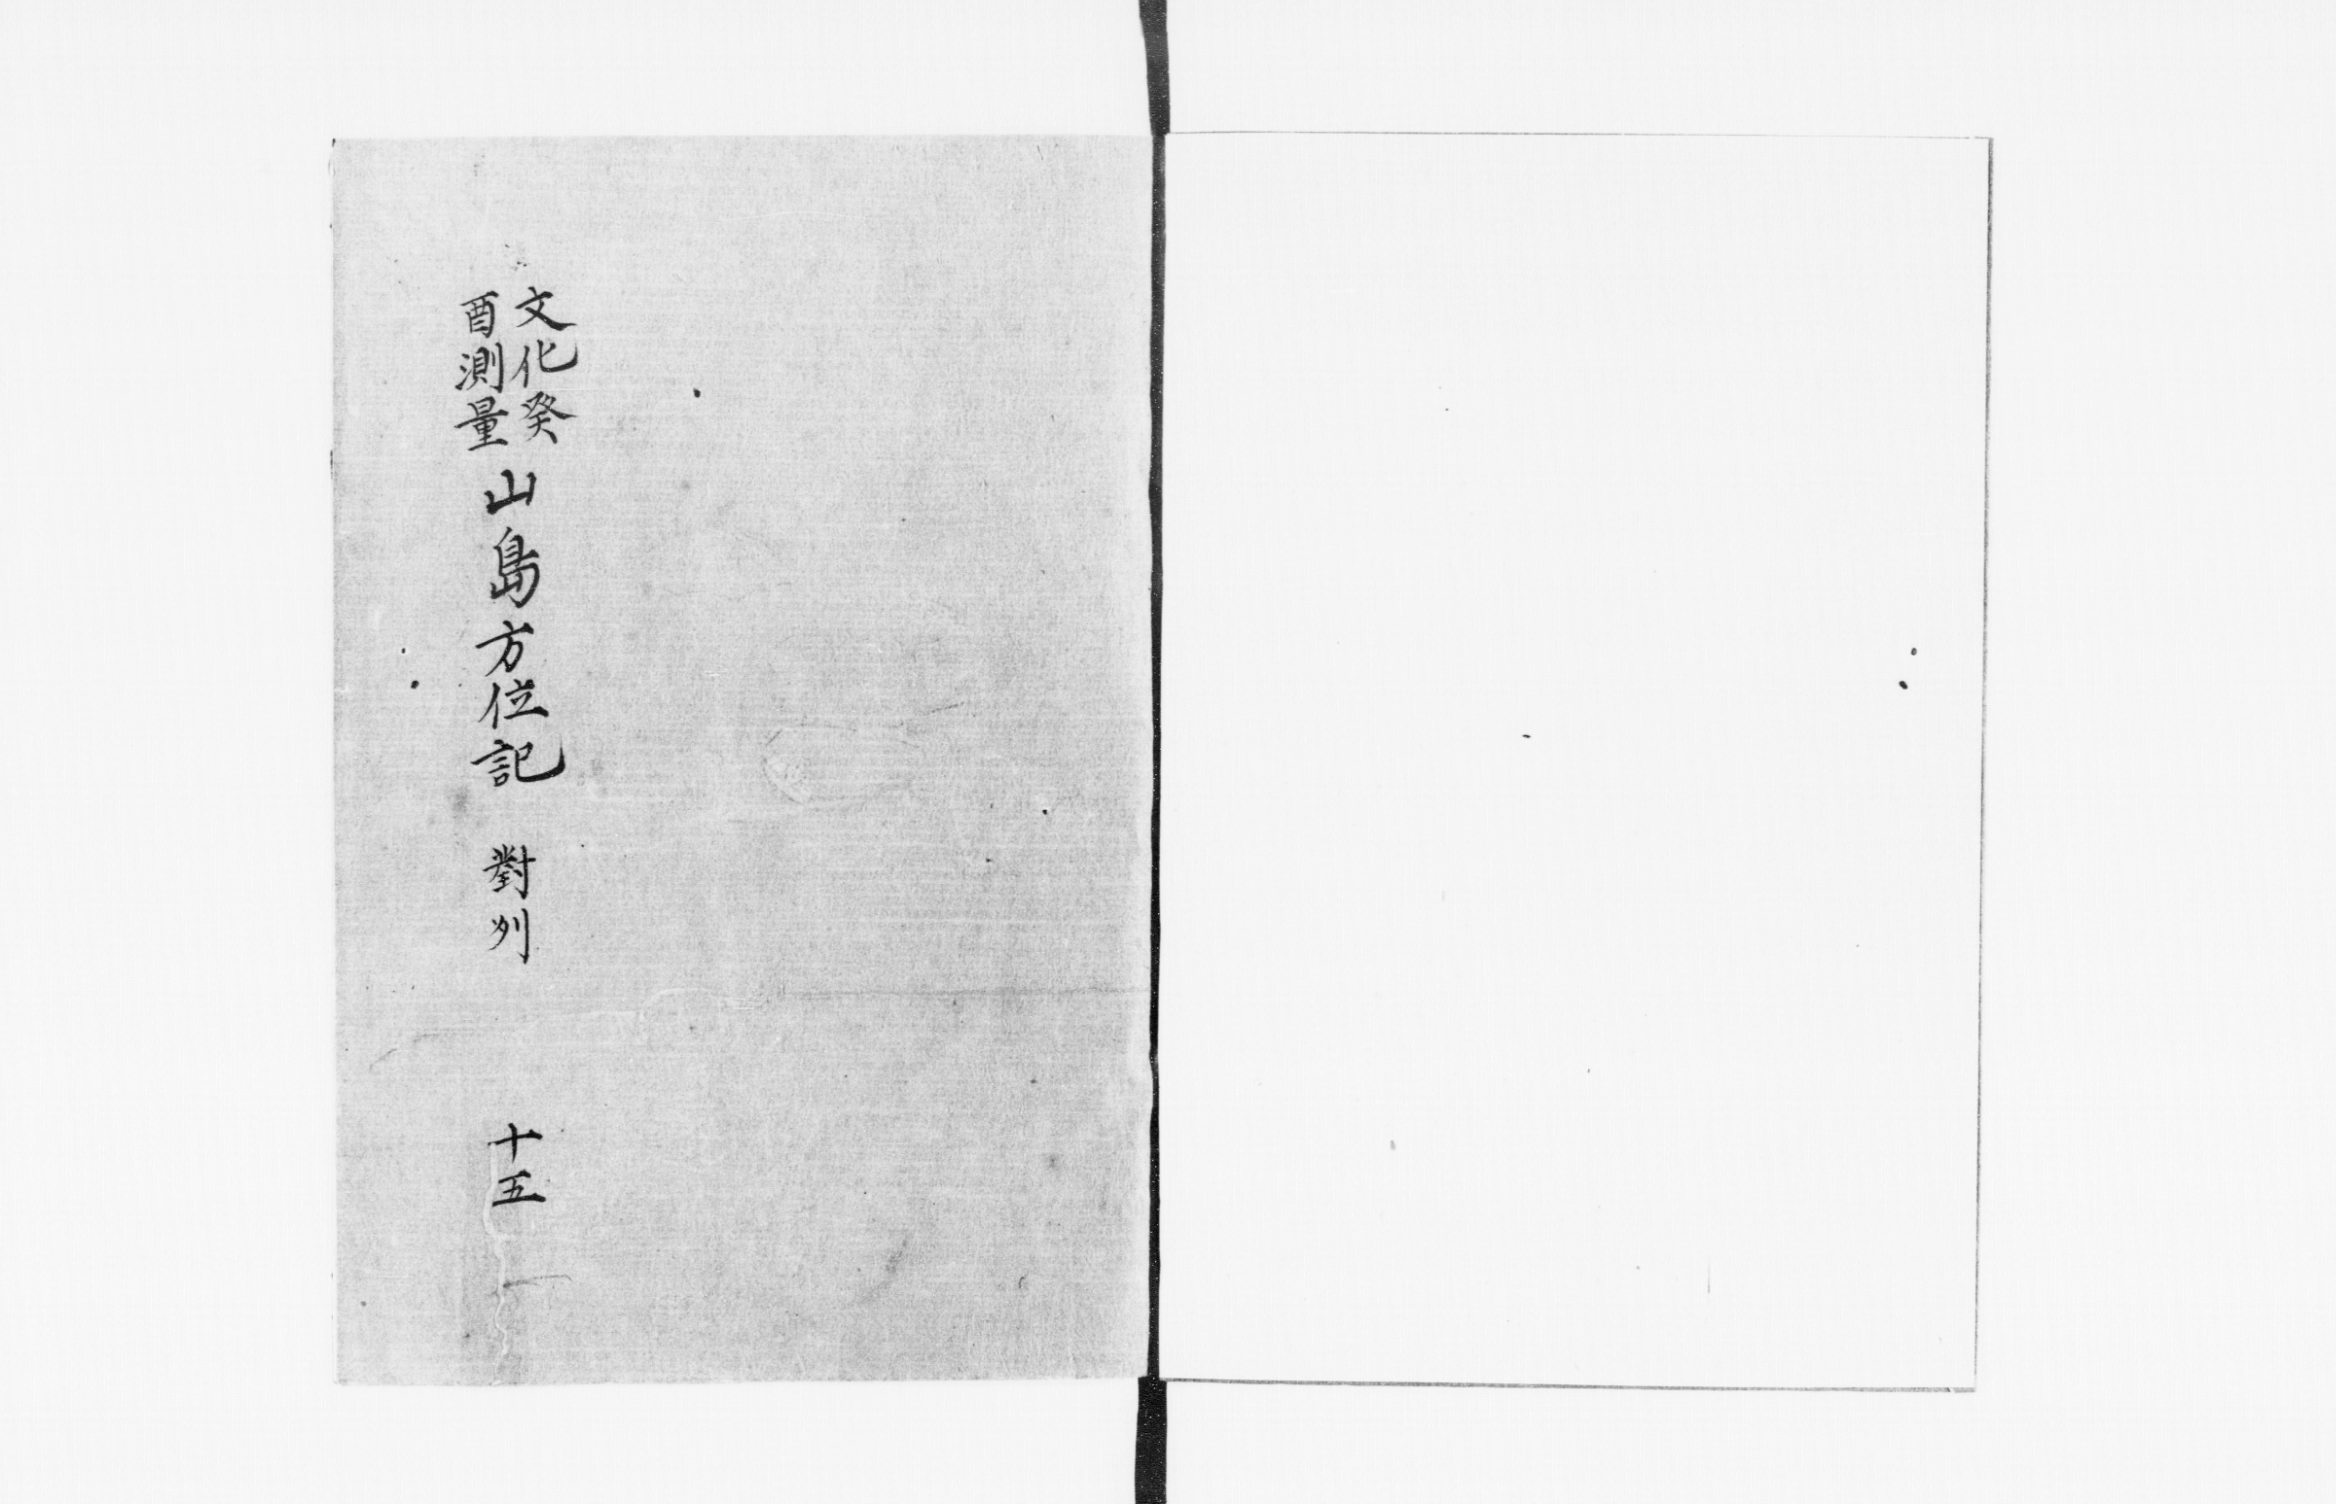 文化癸
酉測量
山島方位記　對州
十五